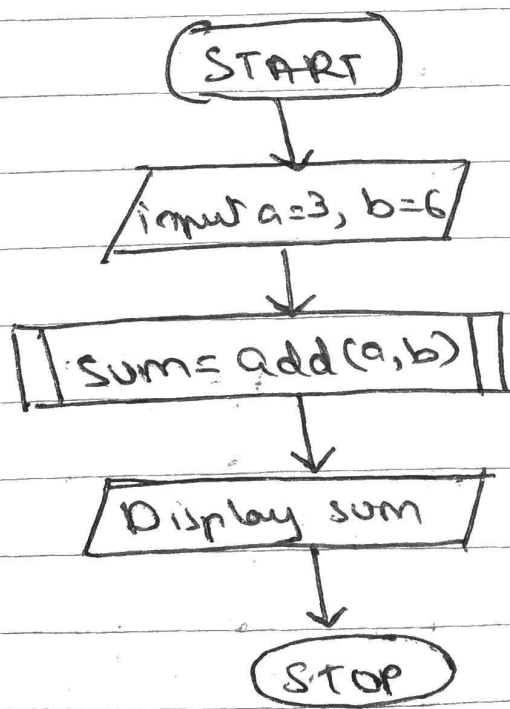 START
input a=3, b=6
sum= add(a,b)
Display sum
STOP